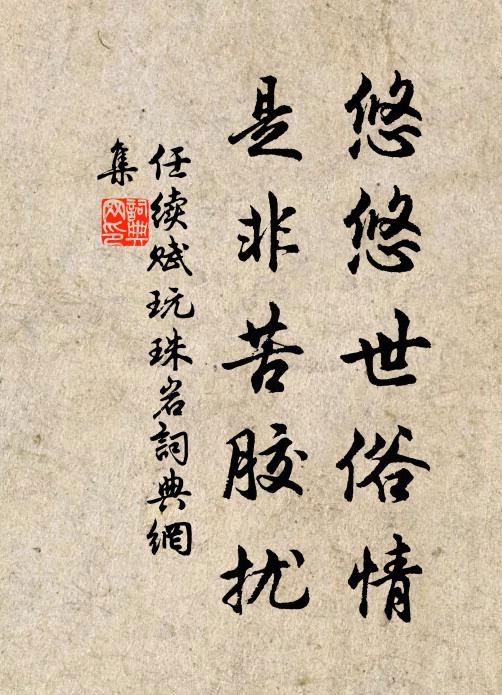 悠悠世俗情
是非苦胶扰
任续赋玩珠岩詞典網
集
詞典
网印